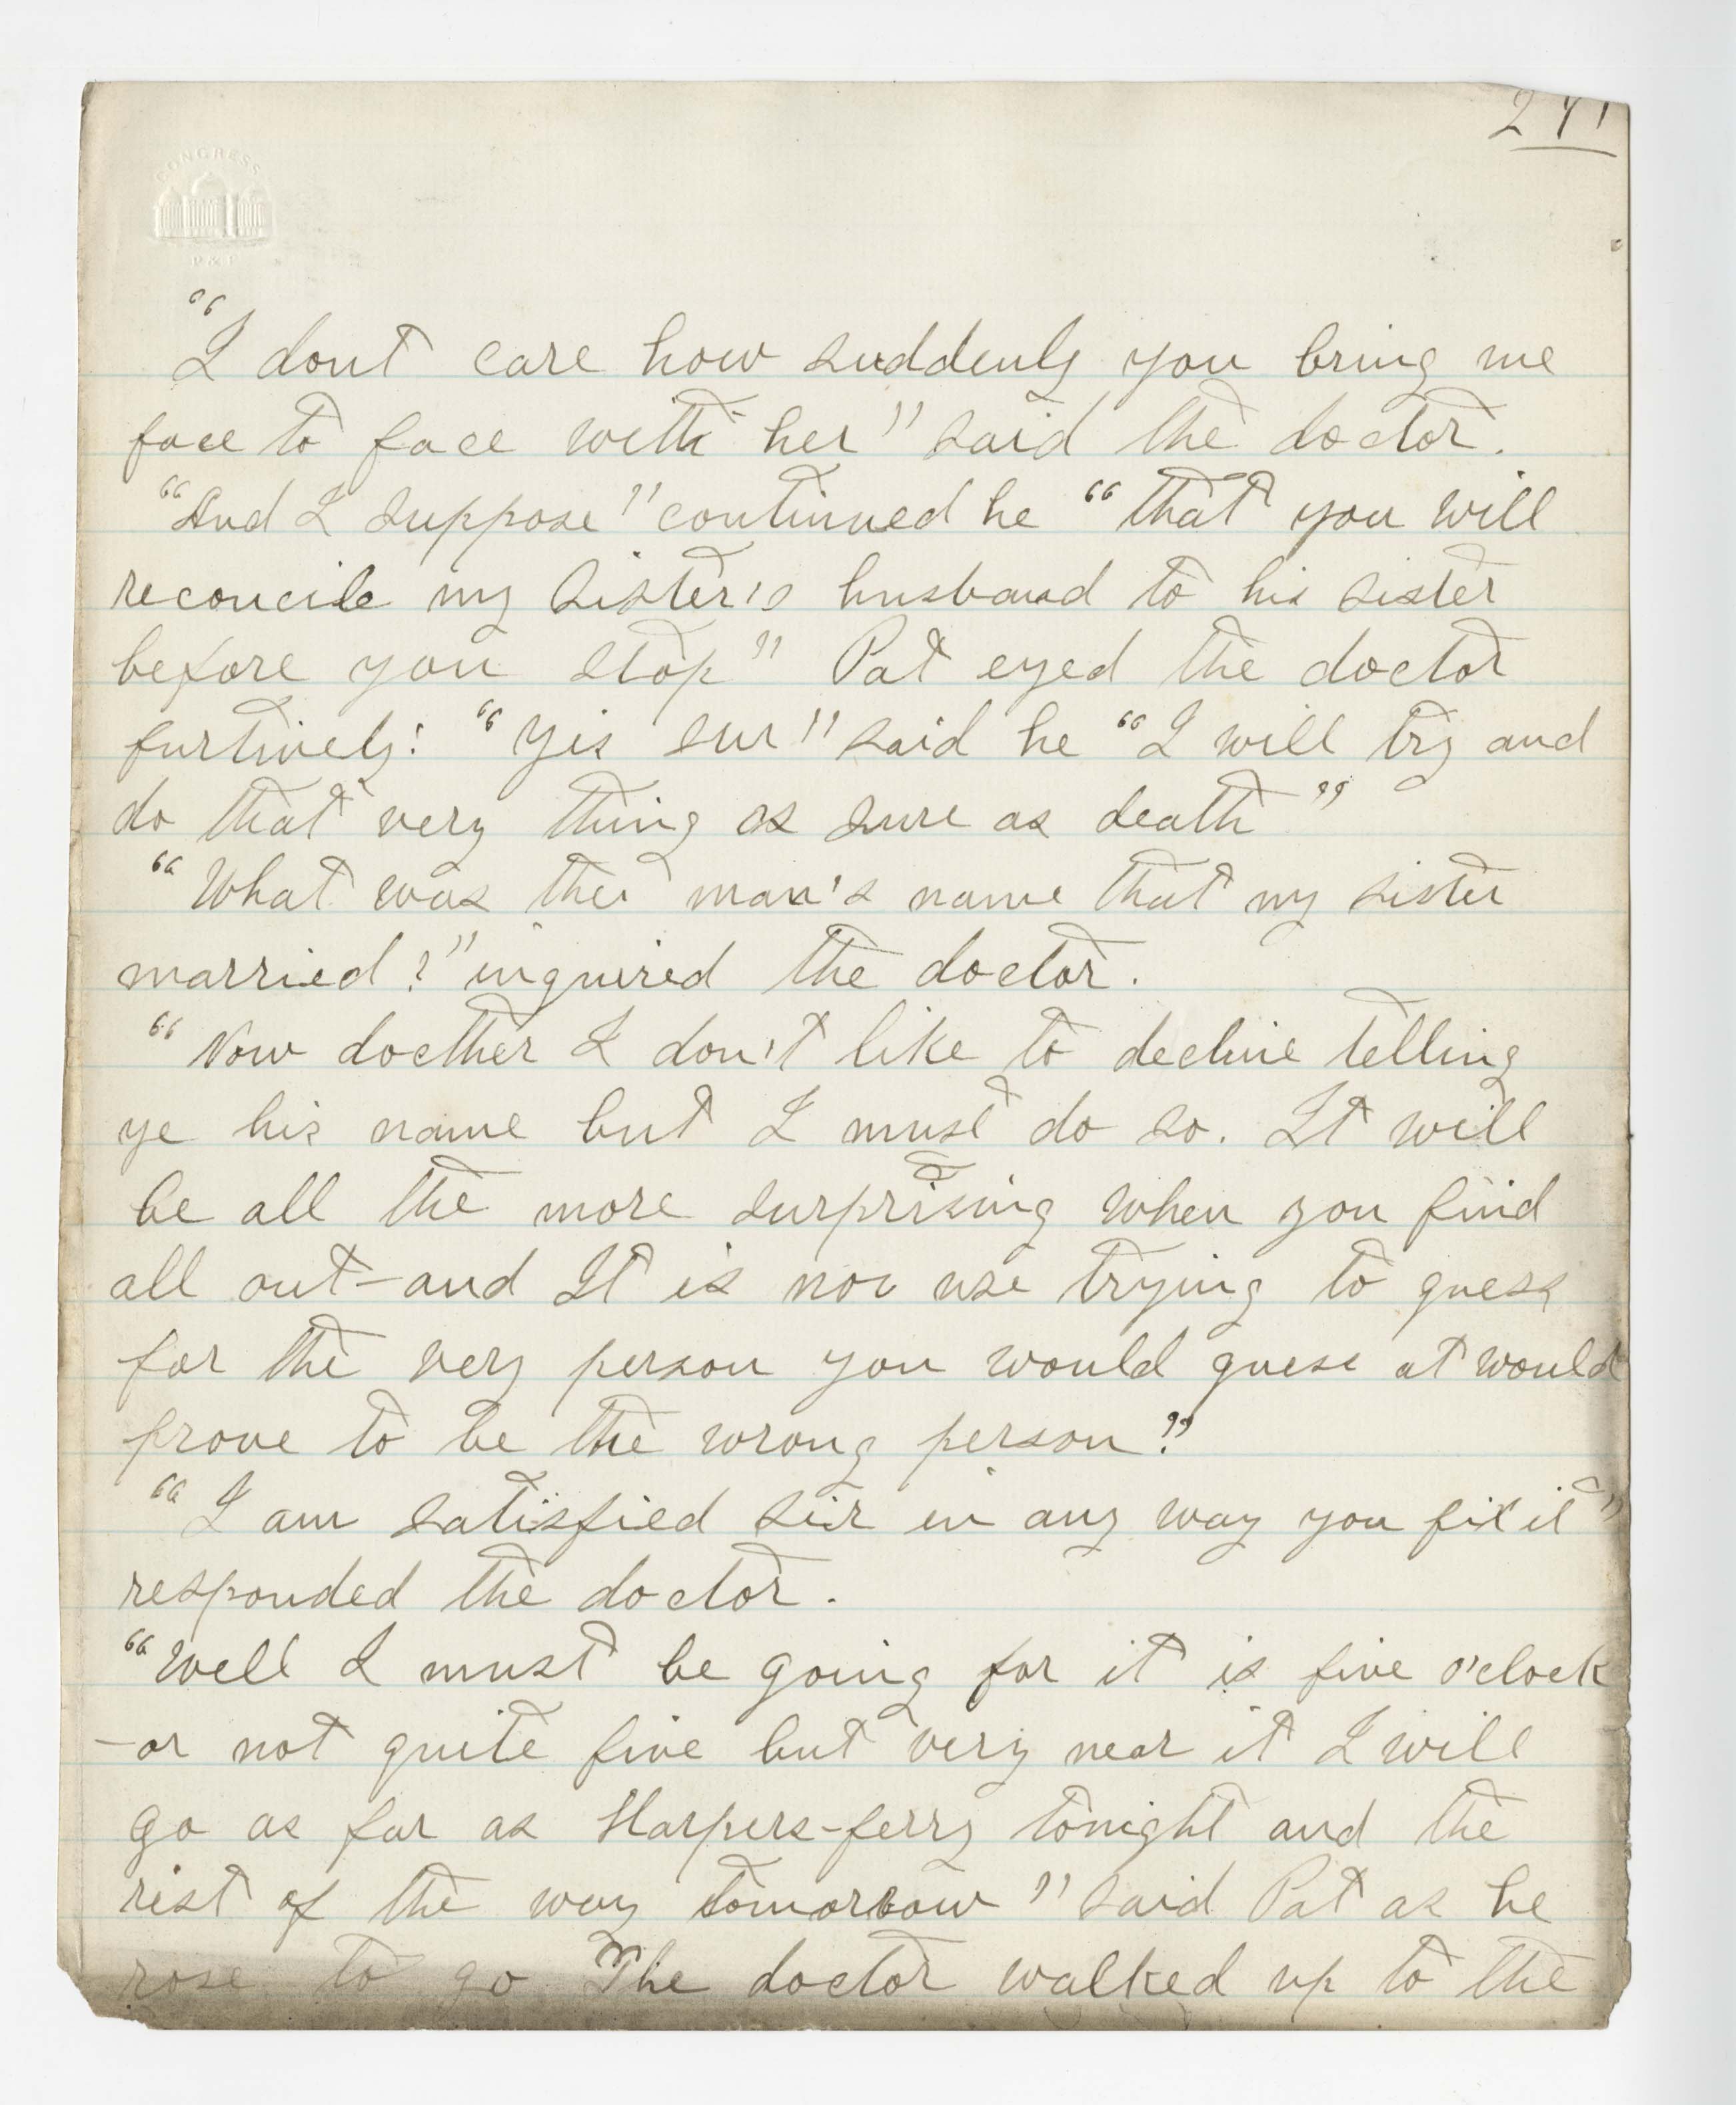 271
CONGRESS
P & P
"I dont care how suddenly you bring me
face to face with her" said the doctor.
"And I suppose" continued he "that you will
reconcile my sister's husband to his sister
before you stop" Pat eyed the doctor
furtively: "Yis sur" said he "I will try and
do that very thing as sure as death"
"What was the man's name that my sister
married?" inquired the doctor.
"Now docther I don't like to decline telling
ye his name but I must do so. It will
be all the more surprising when you find
all out—and It is no use trying to guess
for the very person you would guess at would
prove to be the wrong person."
"I am satisfied sir in any way you fix it"
responded the doctor.
"Well I must be going for it is five o'clock
—or not quite five but very near it I will
go as far as Harpers-ferry tonight and the
rist of the way tomorrow" said Pat as he
rose to go The doctor walked up to the